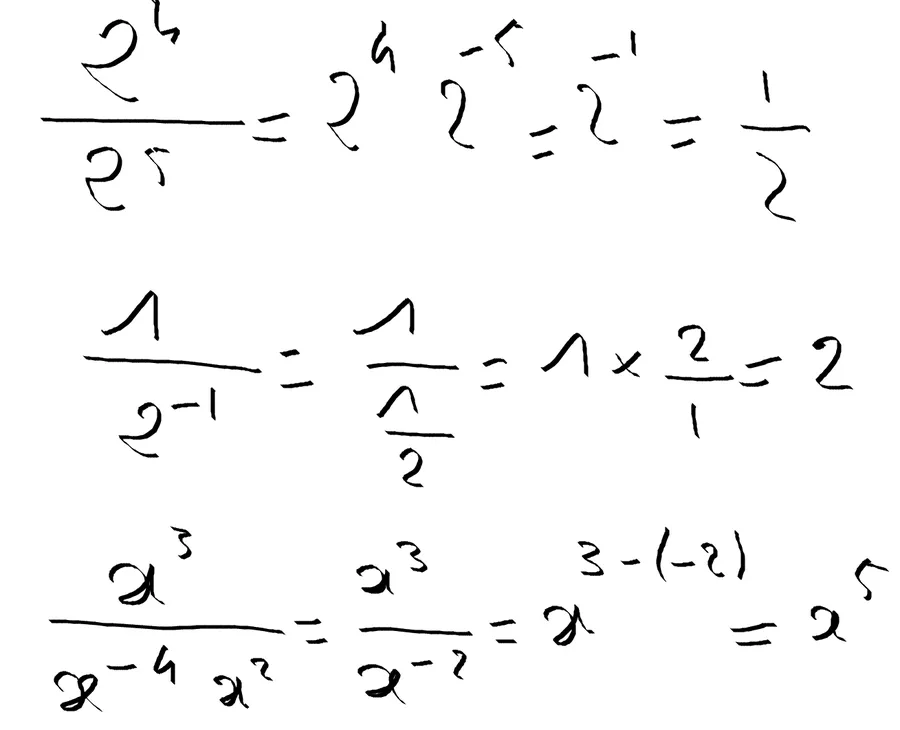 2⁴/2⁵ = 2⁴ 2⁻⁵ = 2⁻¹ = 1/2
1/2⁻¹ = 1/(1/2) = 1 × 2/1 = 2
x³/(x⁻⁴ x²) = x³/x⁻² = x³⁻⁽⁻²⁾ = x⁵